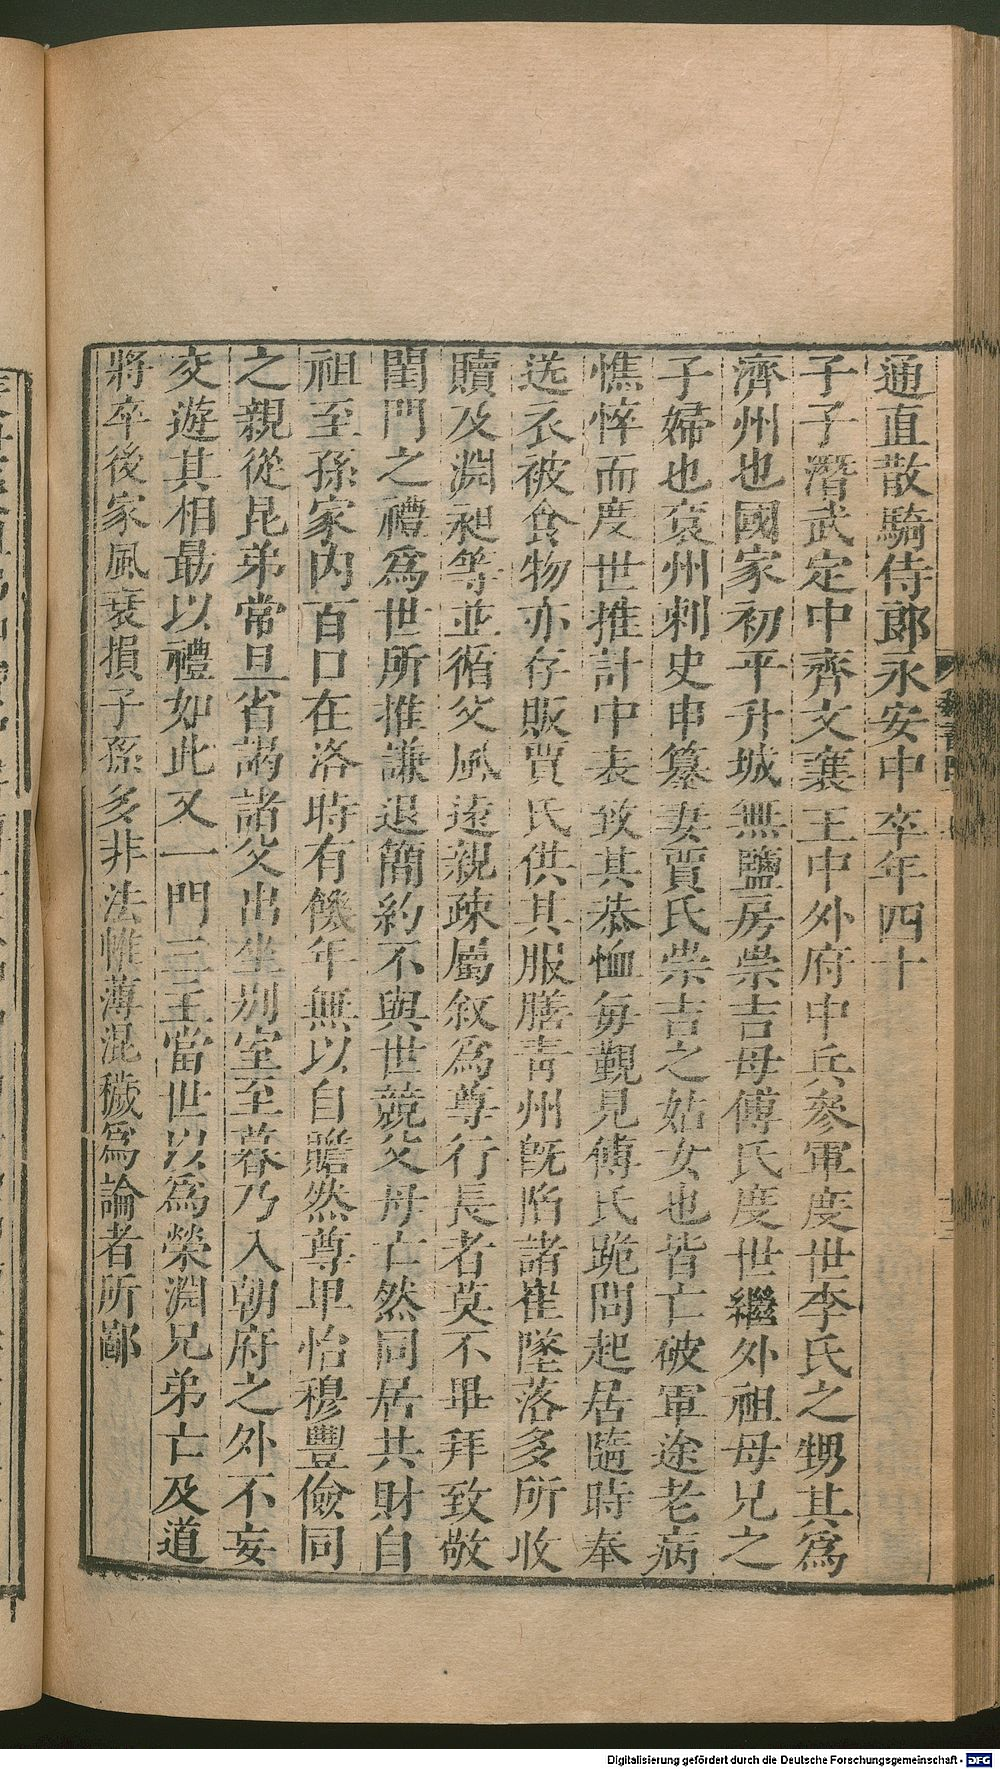 通直散騎侍郎永安中卒年四十
子子潛武定中齊文襄王中外府中兵參軍度世李氏之甥其爲
濟州也國家初平升城無鹽房崇吉母傅氏度世繼外祖母兄之
子婦也兗州刺史申纂妻賈氏崇吉之姑女也皆亡破軍途老病
憔悴而度世推計中表致其恭恤每觐見傅氏跪問起居隨時奉
送衣被食物亦存賑賈氏供其服膳青州旣陷諸崔墜落多所收
贖及淵昶等並循父風遠親疎屬敘爲尊行長者莫不畢拜致敬
閨門之禮爲世所推謙退簡約不與世競父母亡然同居共財自
祖至孫家內百口在洛時有饑年無以自贍然尊卑怡穆豐儉同
之親從昆弟常旦省謁諸父出坐別室至暮乃入朝府之外不妄
交遊其相勗以禮如此又一門三主當世以爲榮淵兄弟亡及道
將卒後家風衰損子孫多非法帷薄混穢爲論者所鄙
Digitalisierung gefördert durch die Deutsche Forschungsgemeinschaft - DFG